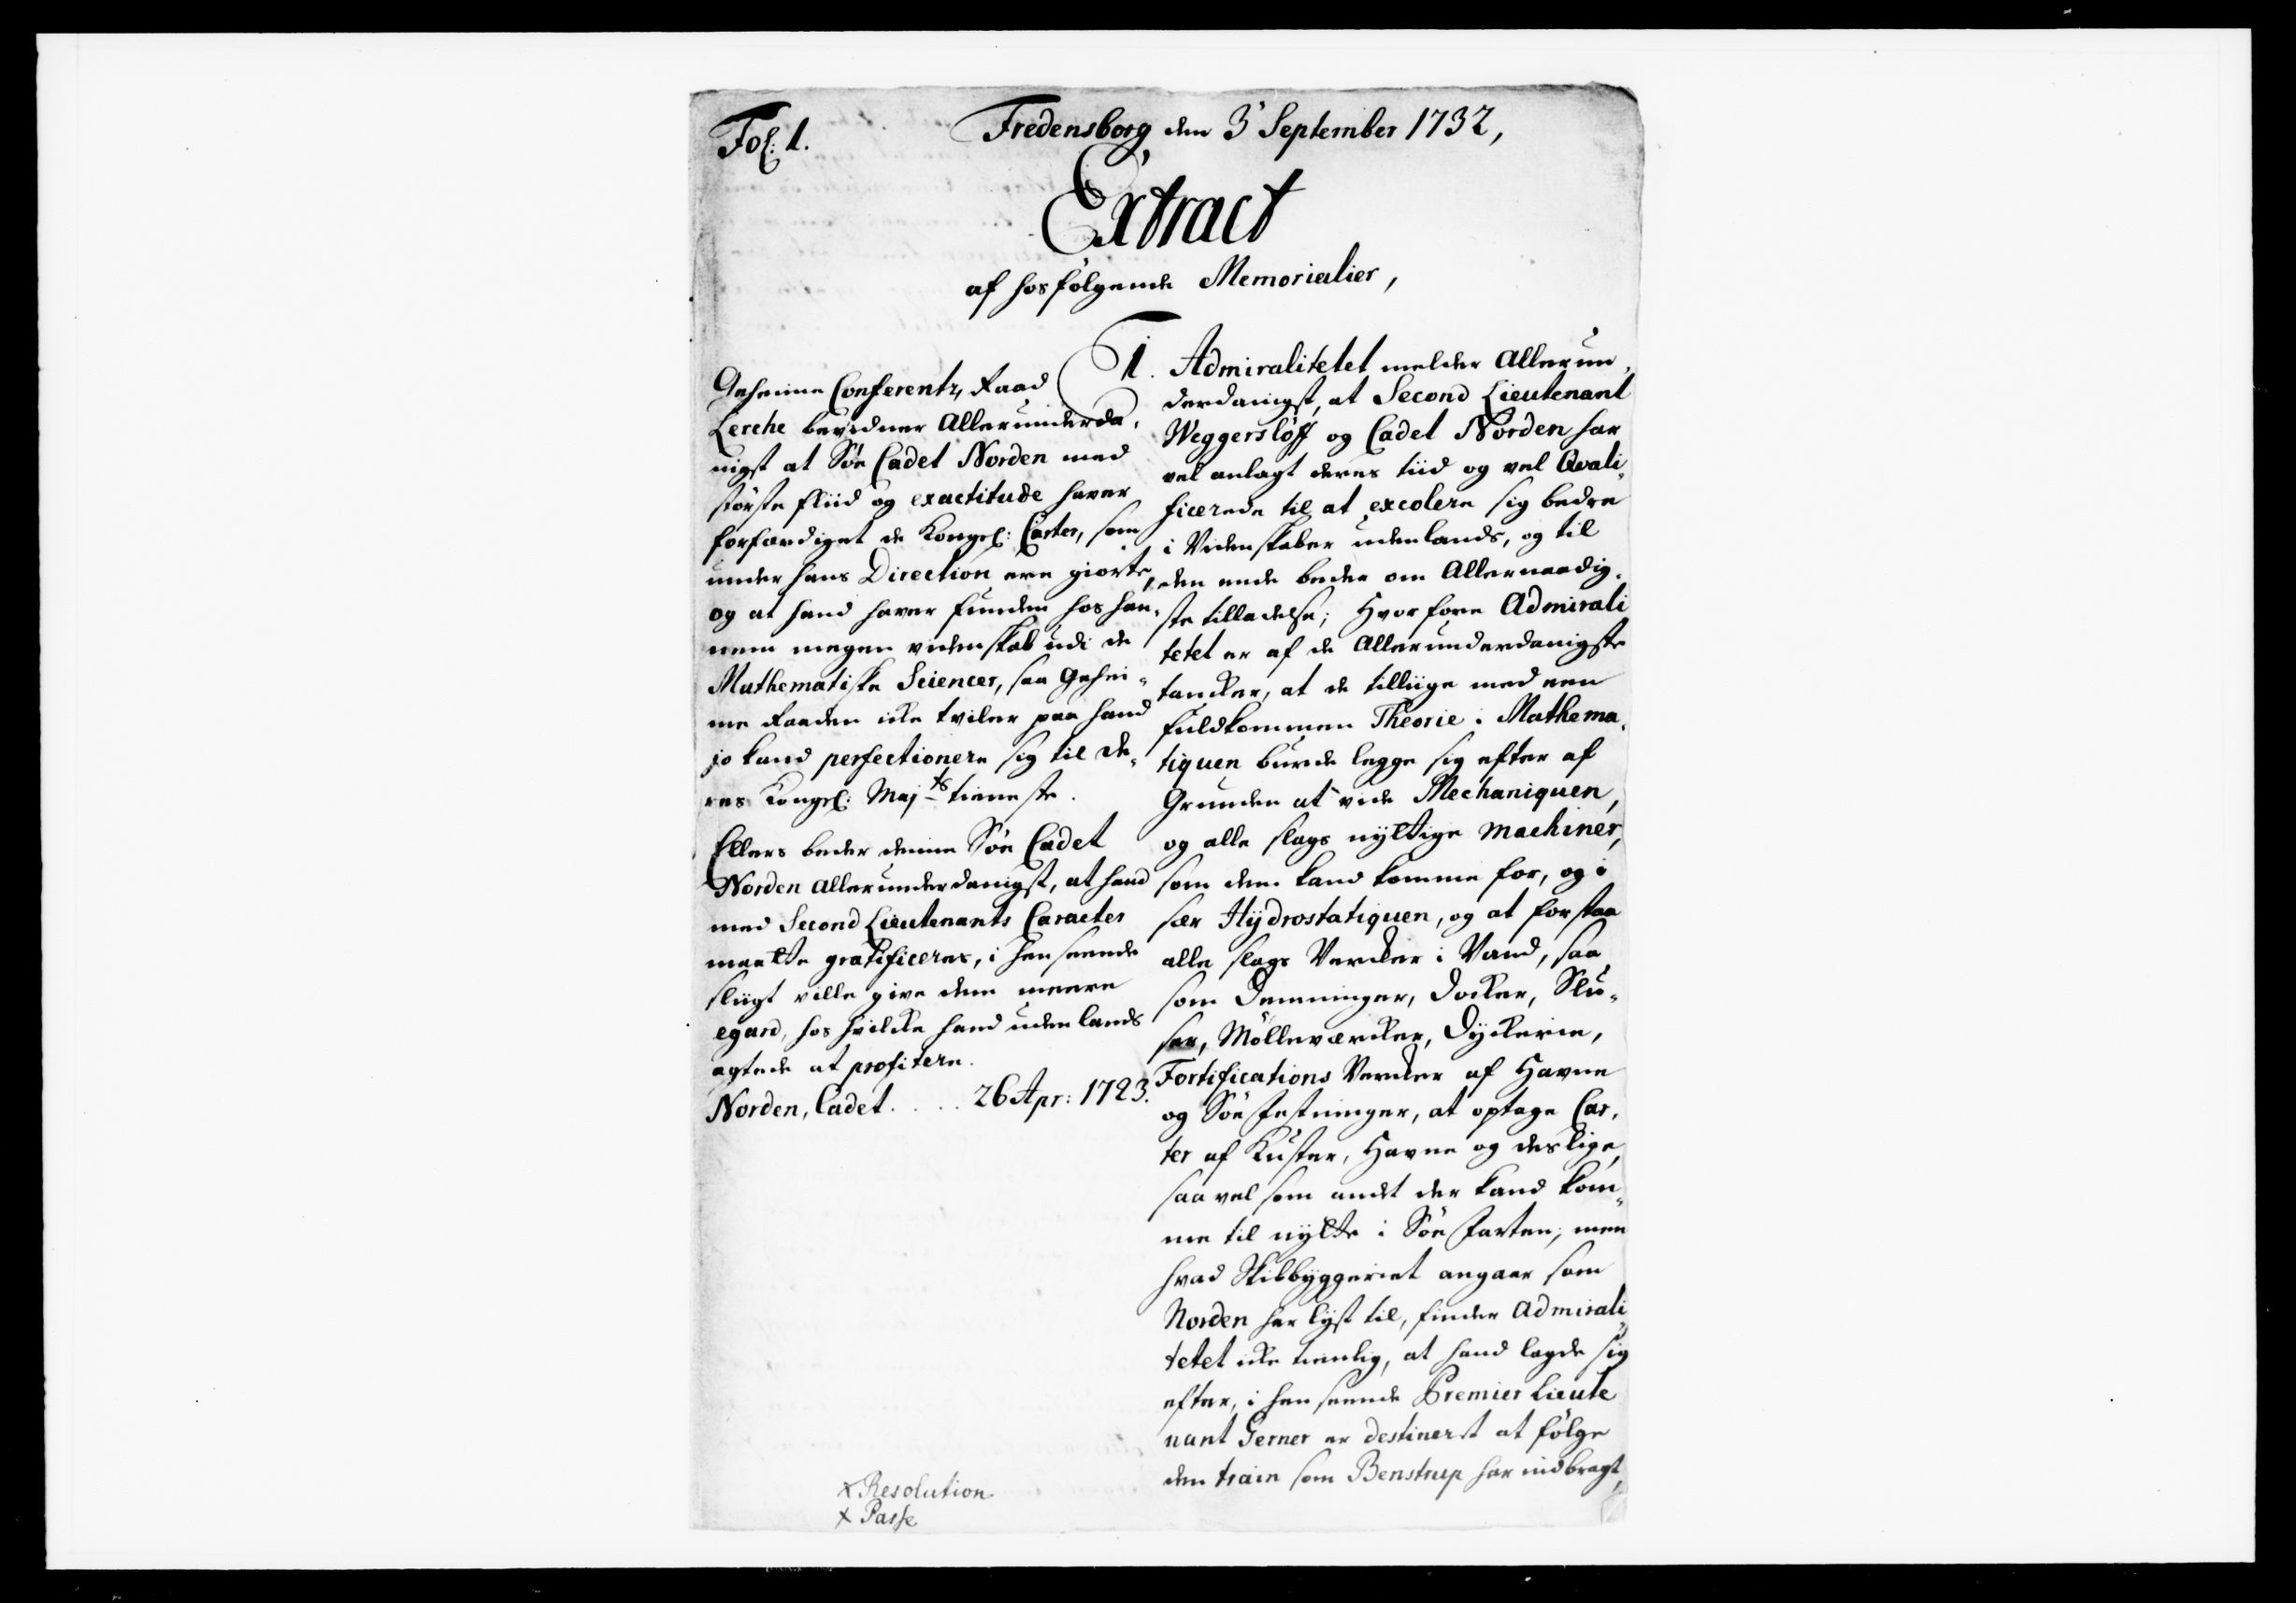 Fol: 1.
Fredensborg den 3' September 1732,
Extract
af hosfölgende Memorialier,
Geheime Conferentz, Raad
Lerche bevidner Allerunderda,
nigst at Söe Cadet Norden med
störste fliid og exactitude haver
forfærdiget de Kongel: Carter, som
under hans Direction ere giorte,
og at hand haver funden hos han,
nem megen videnskab udi de
Mathematiske Sciencer, saa Gehei„
me Raaden icke tviler paa hand
jo kand perfectionere sig til de„
res Kongel: Maj ts tieneste.
Ellers beder denne Söe Cadet
Norden allerunderdanigst, at hand
med Second Lieutenants Caracter
maatte gratificeres, i henseende
sligt ville give dem meere
egard, hos hvilcke hand udenlands
agtede at profitere.
Norden, Cadet . . . . 26 Apr: 1723.
1. Admiralitetet melder Allerun,
derdanigst, at Second Lieutenant
Weggerslöff og Cadet Norden har
vel anlagt deres tiid og vel Qvali„
ficerede til at excolere sig bedre
i Videnskaber udenlands, og til
den ende beder om Allernaadig,
ste tilladelse; Hvorfore Admirali
tetet er af de Allerunderdanigste
tancker, at de tilliige med een
fuldkommen Theorie i Mathema,
tiquen burde legge sig efter af
Grunden at vide Mechaniquen,
og alle slags nyttige machiner,
som dem kand komme for, og i
sær Hydrostatiquen, og at forstaa
alle slags Vercker i Vand, saa
som Demninger, Docker, Slu„
ser, Mölleværcker, Dyckerie,
Fortifications Vercker af Havne
og Söe Festninger, at optage Car,
ter af Kuster, Havne og deslige,
saa vel som andet der kand kom„
me til nytte i Söe Farten; men
hvad Skibbyggeriet angaar som
Norden har lyst til, finder Admirali„
tetet icke tienlig, at hand lagde sig
efter, i henseende Premier Lieute
nant Gerner er destineret at fölge
den train som Benstrup har indbragt,
x Resolution
x Passe